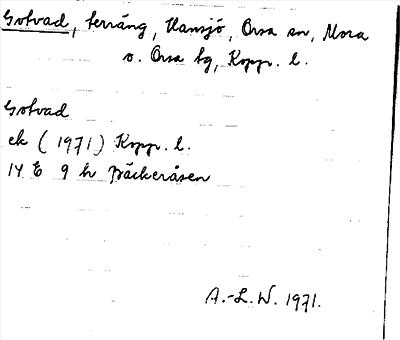 Gotvad, terräng, Hansjö, Orsa sn, Mora
o. Orsa tg, Kopp. l.
Gotvad
ek (1971) Kopp. l.
14 E 9 h Bäckeråsen
A.-L. W. 1971.